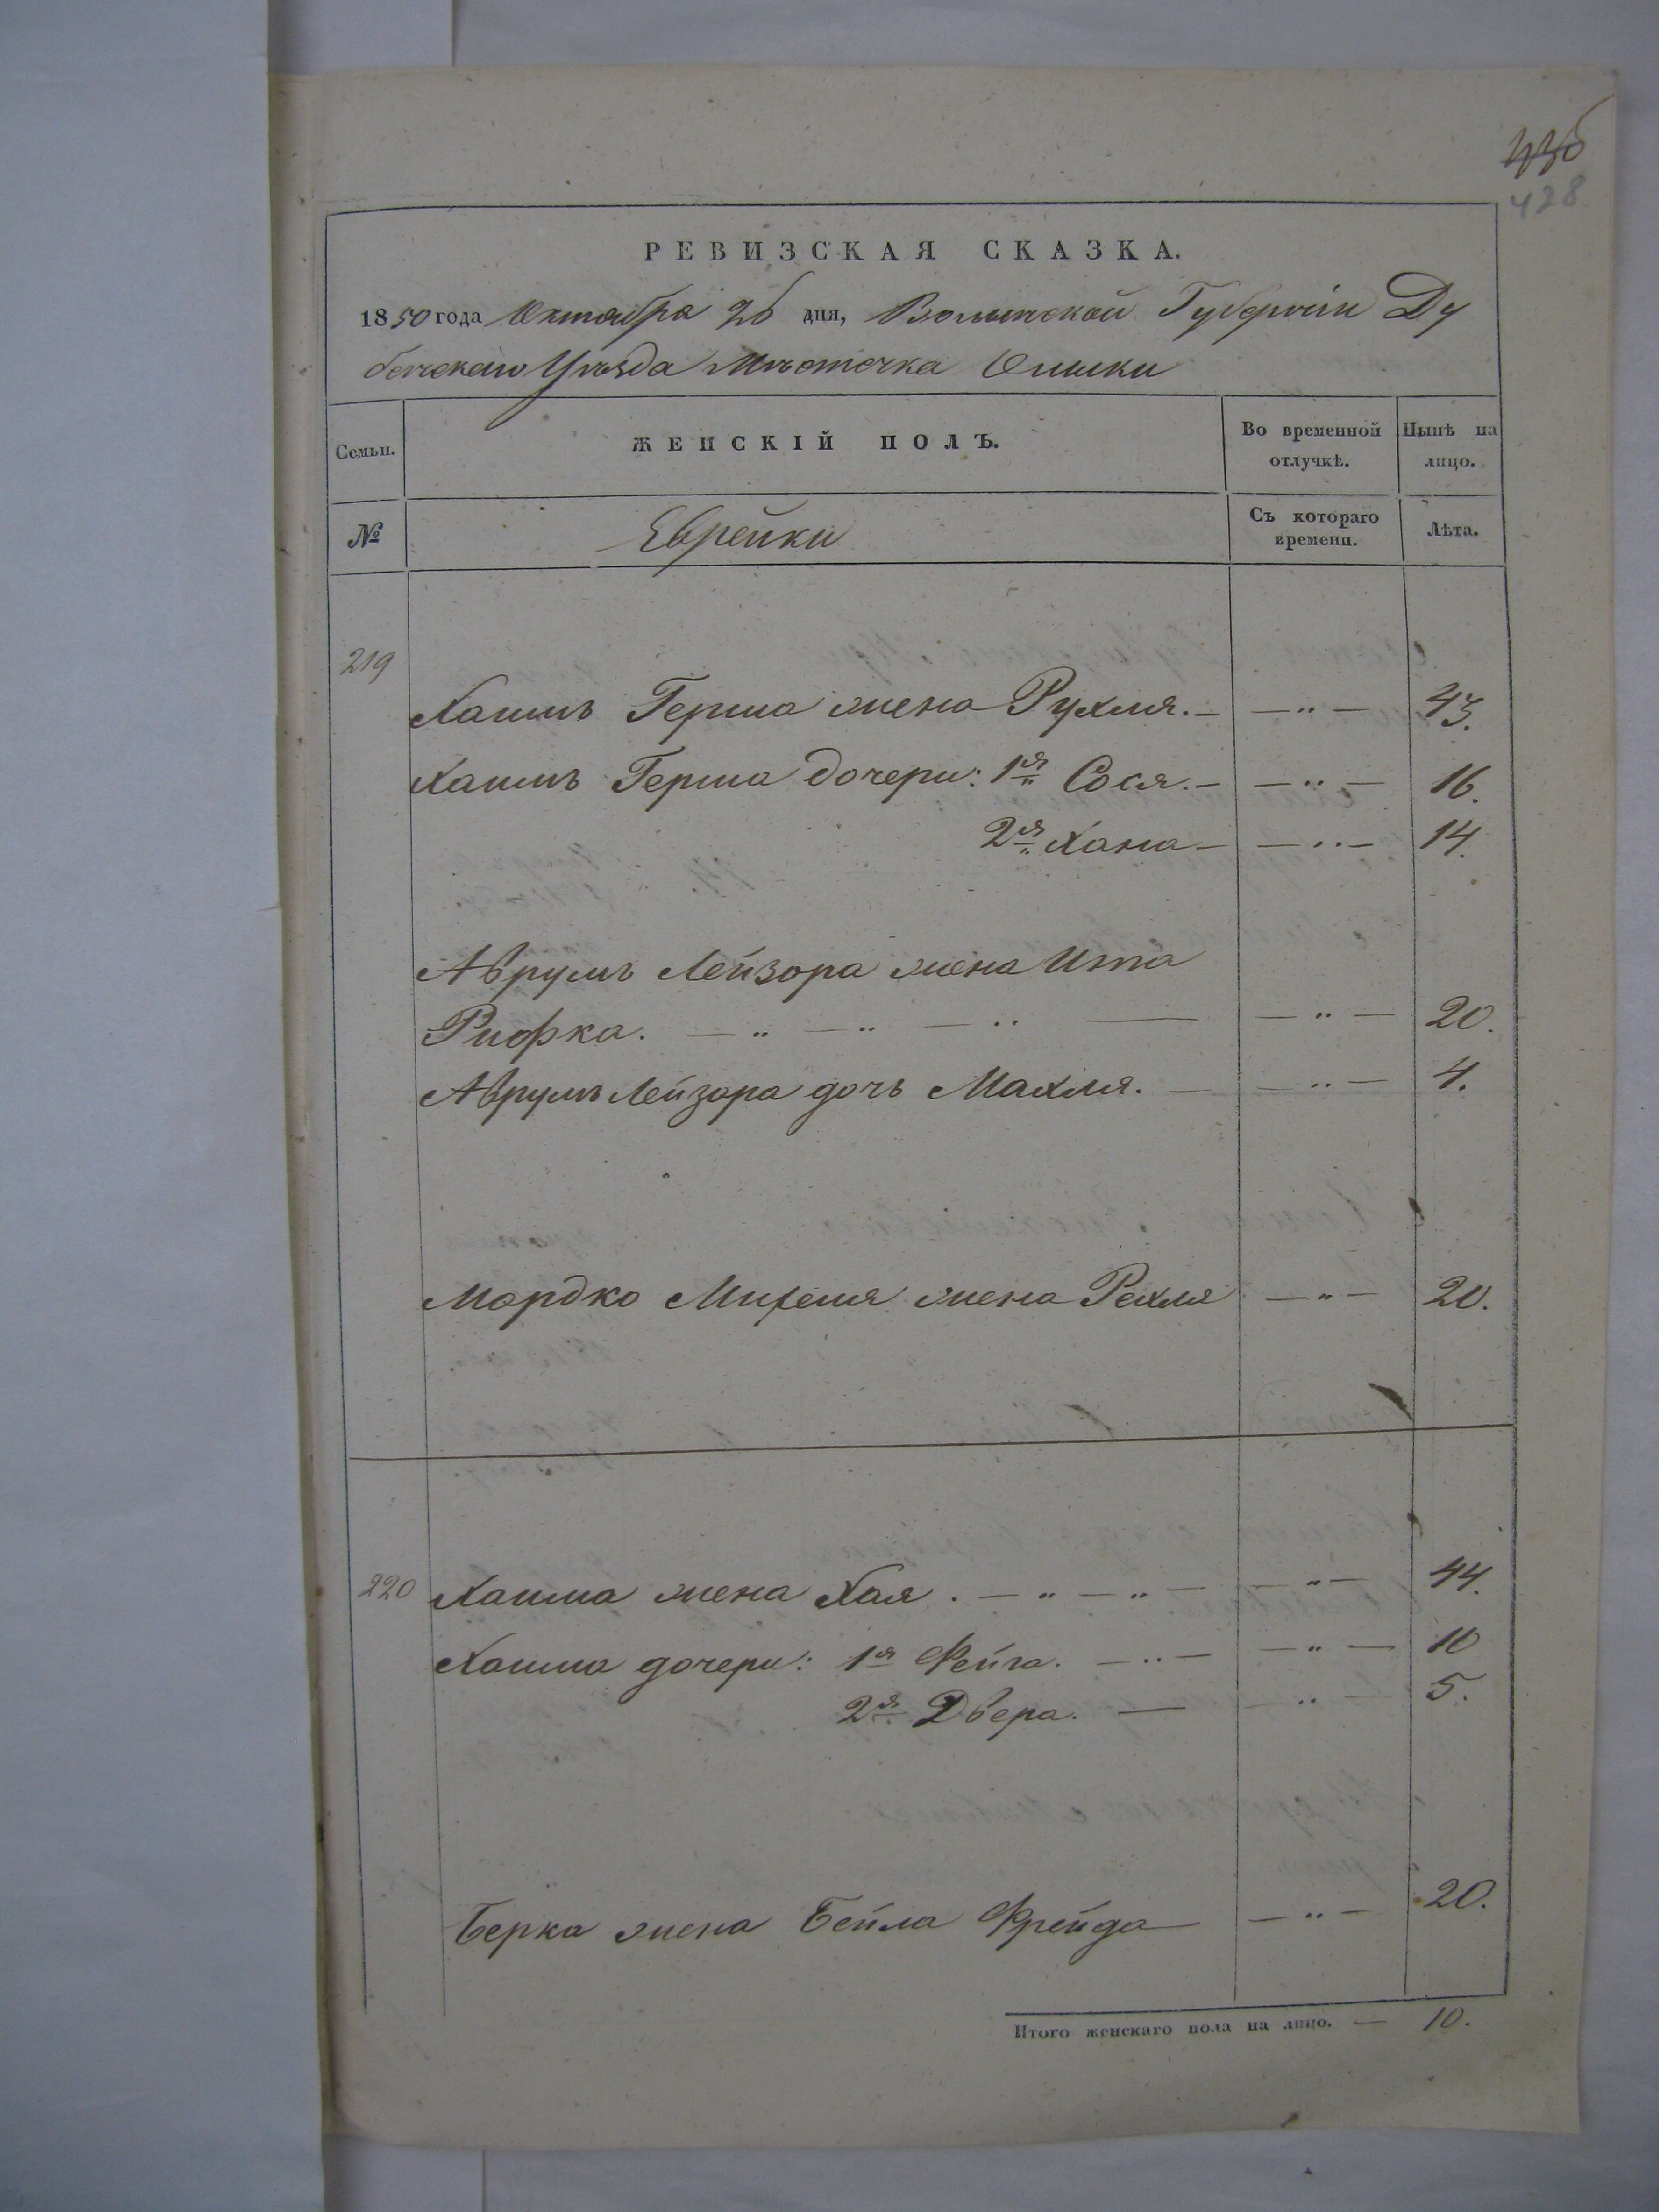 436
428
РЕВИЗСКАЯ СКАЗКА.
1850 года Октября 26 дня, Волынской Губерніи Ду
бенскаго Уѣзда Мѣстечка Олыки
Семьи.
ЖЕНСКІЙ ПОЛЪ.
Во временной отлучкѣ.
Нынѣ на лицо.
№
Еврейки
Съ котораго времени.
Лѣта.
219
Хаимъ Герша жена Рухля. — — „ — 43.
Хаимъ Герша дочери: 1я Сося. — — „ — 16.
2я Хана — — „ — 14.
Аврумъ Лейзора жена Ита
Рифка. — „ — „ — „ — — „ — 20.
Аврумъ Лейзора дочь Махля. — — „ — 4.
Мордко Михеля жена Рехля — „ — 20.
220 Хаима жена Хая. — „ — „ — — „ — 44.
Хаима дочери: 1я Фейга. — „ — — „ — 10
2я Двера. — — „ — 5.
Берка жена Бейла Фрейда — — „ — 20.
Итого женскаго пола на лицо. — 10.